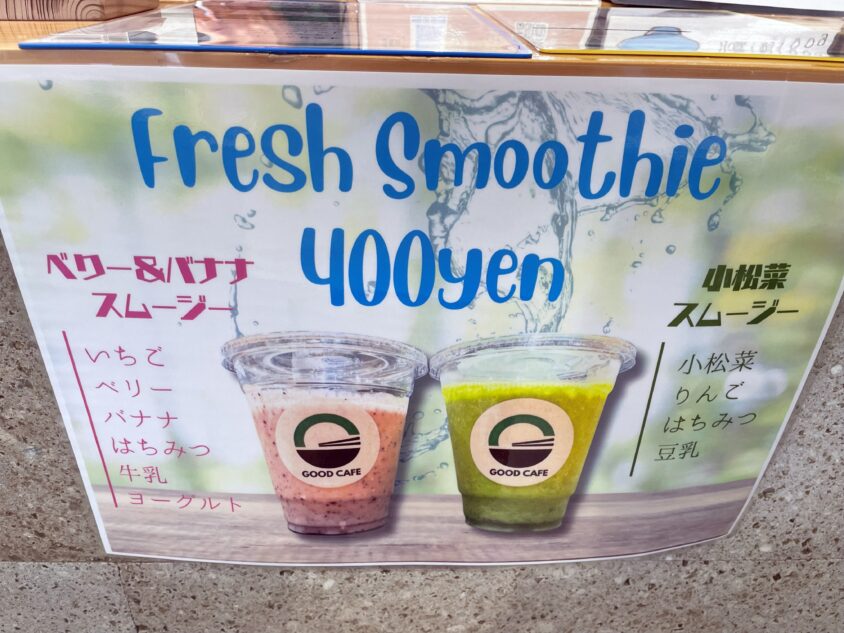 Fresh Smoothie
400yen
ベリー&バナナ
スムージー
いちご
ベリー
バナナ
はちみつ
牛乳
ヨーグルト
GOOD CAFE
GOOD CAFE
小松菜
スムージー
小松菜
りんご
はちみつ
豆乳